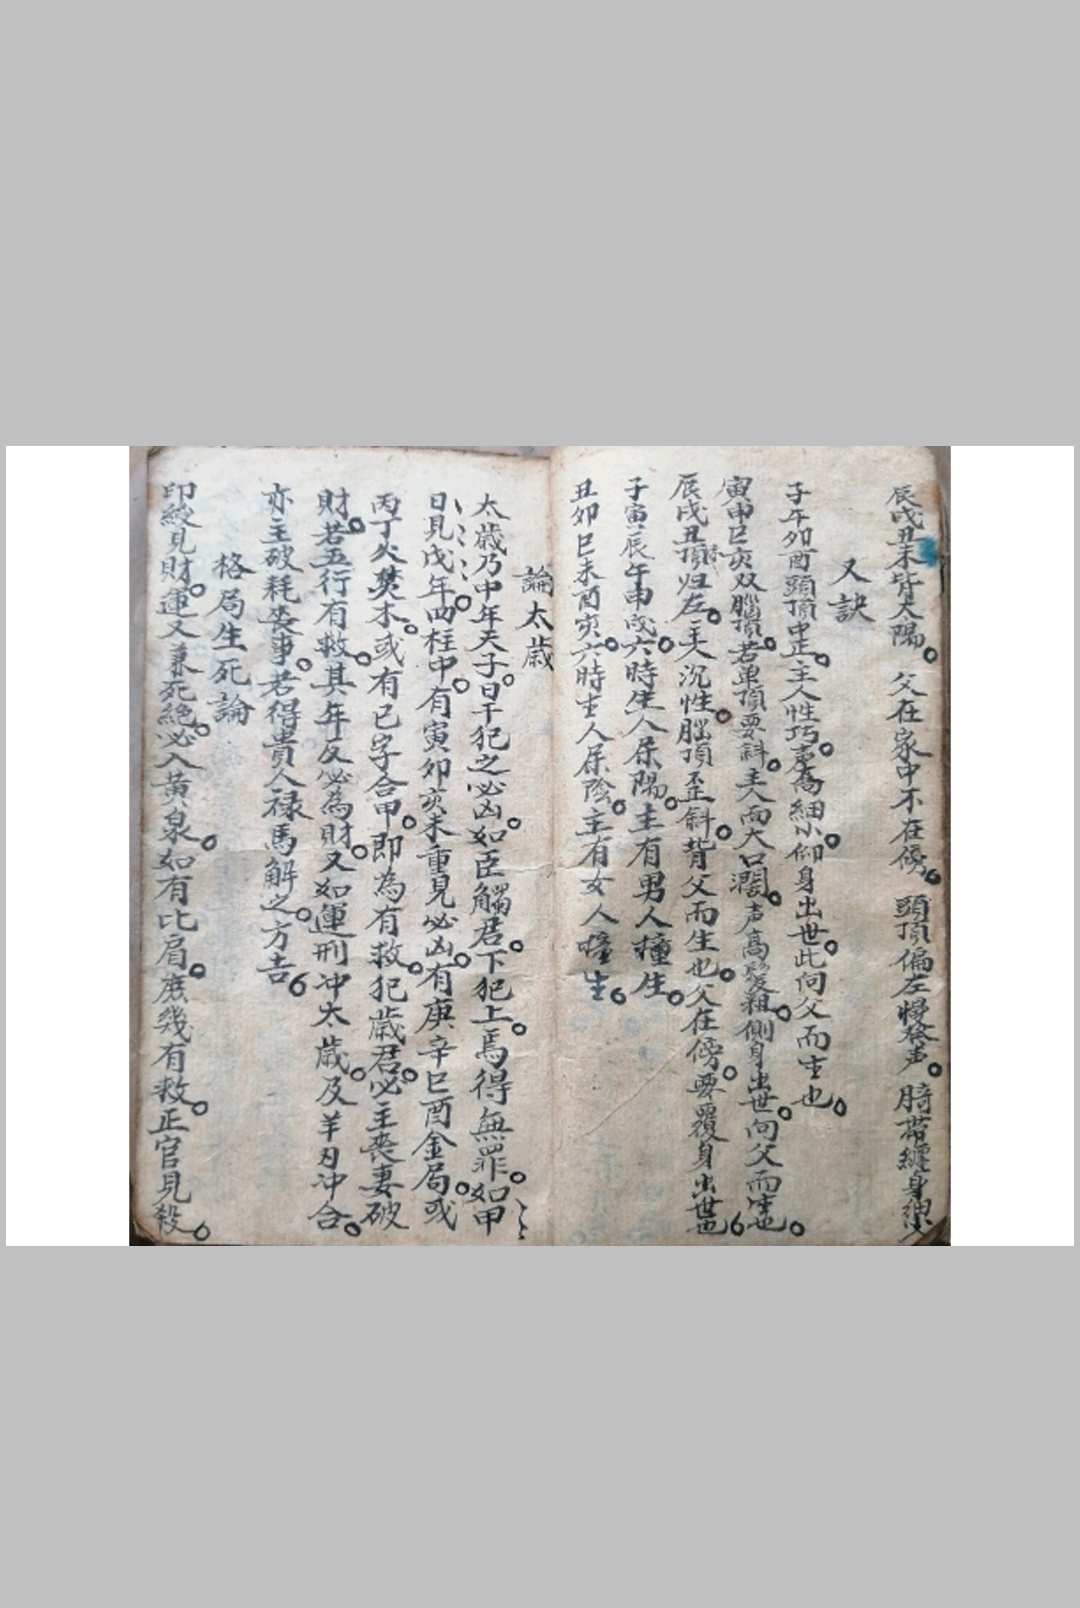 辰戌丑未皆太陽。父在家中不在傍。頭頂偏左慢發声。臍帶纏身
又訣
子午卯酉頭頂中正。主人性巧。声高細小。仰身出世。此向父而生也。
寅申巳亥双腦頂。若单頂要斜。主人面大口濶。声高髮粗。側身出世。向父而生也。
辰戌丑頂归左。主人沉性。腦頂歪斜。背父而生也。父在傍。要覆身出世也。
子寅辰午申戌。六時生人屬陽。主有男人撞生。
丑卯巳未酉亥。六時生人屬陰。主有女人撞生。
論太歲
太歲乃中年天子。日干犯之必凶。如臣觸君。下犯上。焉得無罪。如甲
日見戊年。四柱中。有寅卯亥未重見必凶。有庚辛巳酉金局。或
丙丁火焚木。或有己字合甲。即為有救。犯歲君。必主喪妻破
財。若五行有救。其年反必為財。又如運刑冲太歲。及羊刃冲合。
亦主破耗喪事。若得貴人禄馬解之。方吉。
格局生死論
印綬見財。運又兼死絕。必入黄泉。如有比肩。庶幾有救。正官見殺。